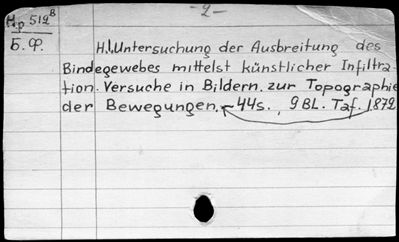 Н.р 512ᴮ
-2-
Б.Ф.
H.1. Untersuchung der Ausbreitung des
Bindegewebes mittelst künstlicher Infiltra-
tion. Versuche in Bildern. zur Topographie
der Bewegungen. - 44s., 9 BL. Taf. 1872